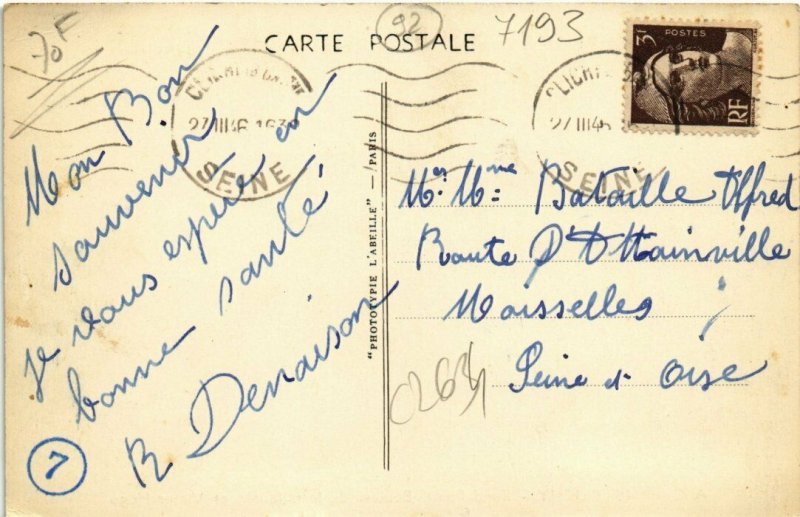 70F
92
7193
CARTE POSTALE
POSTES
3F
RF
27 III 46 1630
SEINE
27 III 46
SEINE
Mon Bon
souvenir
je vous espère en
bonne santé
R Denaison
7
"PHOTOTYPIE L'ABEILLE" — PARIS
Mr. Mme Bataille Alfred
Route D'Attainville
Moisselles
Seine et Oise